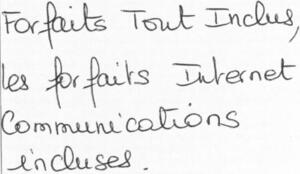 Forfaits Tout Inclus,
les forfaits Internet
Communications
incluses.